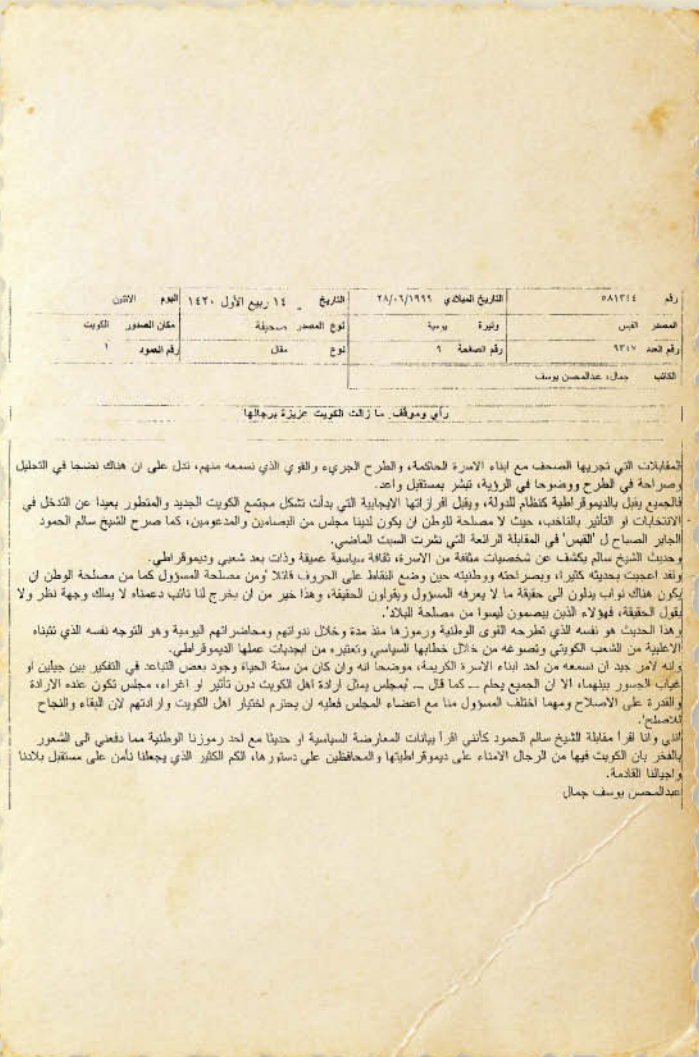 رقم ٥٨١٣٤٤ التاريخ الميلادي ٢٨/٠٦/١٩٩٩ التاريخ ١٤ ربيع الأول ١٤٢٠ اليوم الاثنين
المصدر القبس وتيرة يومية نوع المصدر صحيفة مكان الصدور الكويت
رقم العدد ٩٣٤٧ رقم الصفحة ٩ نوع مقال رقم العمود ١
الكاتب جمال، عبدالمحسن يوسف
رأي وموقف ما زالت الكويت عزيزة برجالها
المقابلات التي تجريها الصحف مع ابناء الاسرة الحاكمة، والطرح الجريء والقوي الذي نسمعه منهم، تدل على ان هناك نضجا في التحليل
وصراحة في الطرح ووضوحا في الرؤية، تبشر بمستقبل واعد.
فالجميع يقبل بالديموقراطية كنظام للدولة، ويقبل افرازاتها الايجابية التي بدأت تشكل مجتمع الكويت الجديد والمتطور بعيدا عن التدخل في
الانتخابات او التأثير بالناخب، حيث لا مصلحة للوطن ان يكون لدينا مجلس من البصامين والمدعومين، كما صرح الشيخ سالم الحمود
الجابر الصباح ل 'القبس' في المقابلة الرائعة التي نشرت السبت الماضي.
وحديث الشيخ سالم يكشف عن شخصيات مثقفة من الاسرة، ثقافة سياسية عميقة وذات بعد شعبي وديموقراطي.
ولقد اعجبت بحديثه كثيرا، وبصراحته ووطنيته حين وضع النقاط على الحروف قائلا 'ومن مصلحة المسؤول كما من مصلحة الوطن ان
يكون هناك نواب يدلون الى حقيقة ما لا يعرفه المسؤول ويقولون الحقيقة، وهذا خير من ان يخرج لنا نائب دعمناه لا يملك وجهة نظر ولا
يقول الحقيقة، فهؤلاء الذين يبصمون ليسوا من مصلحة البلاد'.
وهذا الحديث هو نفسه الذي تطرحه القوى الوطنية ورموزها منذ مدة وخلال ندواتهم ومحاضراتهم اليومية وهو التوجه نفسه الذي تتبناه
الاغلبية من الشعب الكويتي وتصوغه من خلال خطابها السياسي وتعتبره من ابجديات عملها الديموقراطي.
وانه لامر جيد ان نسمعه من احد ابناء الاسرة الكريمة، موضحا انه وان كان من سنة الحياة وجود بعض التباعد في التفكير بين جيلين او
غياب الجسور بينهما، الا ان الجميع يحلم ــ كما قال ــ 'بمجلس يمثل ارادة اهل الكويت دون تأثير او اغراء، مجلس تكون عنده الارادة
والقدرة على الاصلاح ومهما اختلف المسؤول منا مع اعضاء المجلس فعليه ان يحترم اختيار اهل الكويت وارادتهم لان البقاء والنجاح
للاصلح'.
انني وانا اقرأ مقابلة للشيخ سالم الحمود كأنني اقرأ بيانات المعارضة السياسية او حديثا مع احد رموزنا الوطنية مما دفعني الى الشعور
بالفخر بان الكويت فيها من الرجال الامناء على ديموقراطيتها والمحافظين على دستورها، الكم الكثير الذي يجعلنا نأمن على مستقبل بلادنا
واجيالنا القادمة.
عبدالمحسن يوسف جمال